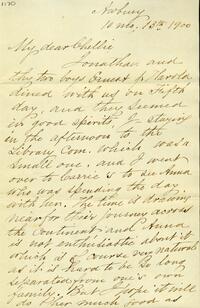 1170
Newbury
10 mo. 13th 1900
My dear Chellie
Jonathan and
thy two boys Ernest & Harold
dined with us on Fifth
day, and they seemed
in good spirits, I staying
in the afternoon to the
Library Com. which was a
small one, and I went
over to Carrie's to see Anna
who was spending the day
with her. The time is drawing
near for their journey across
the Continent and Anna
is not enthusiastic about it
which is of course very natural
as it is hard to be so long
separated from one's own
family. But I hope it will
do her much good as